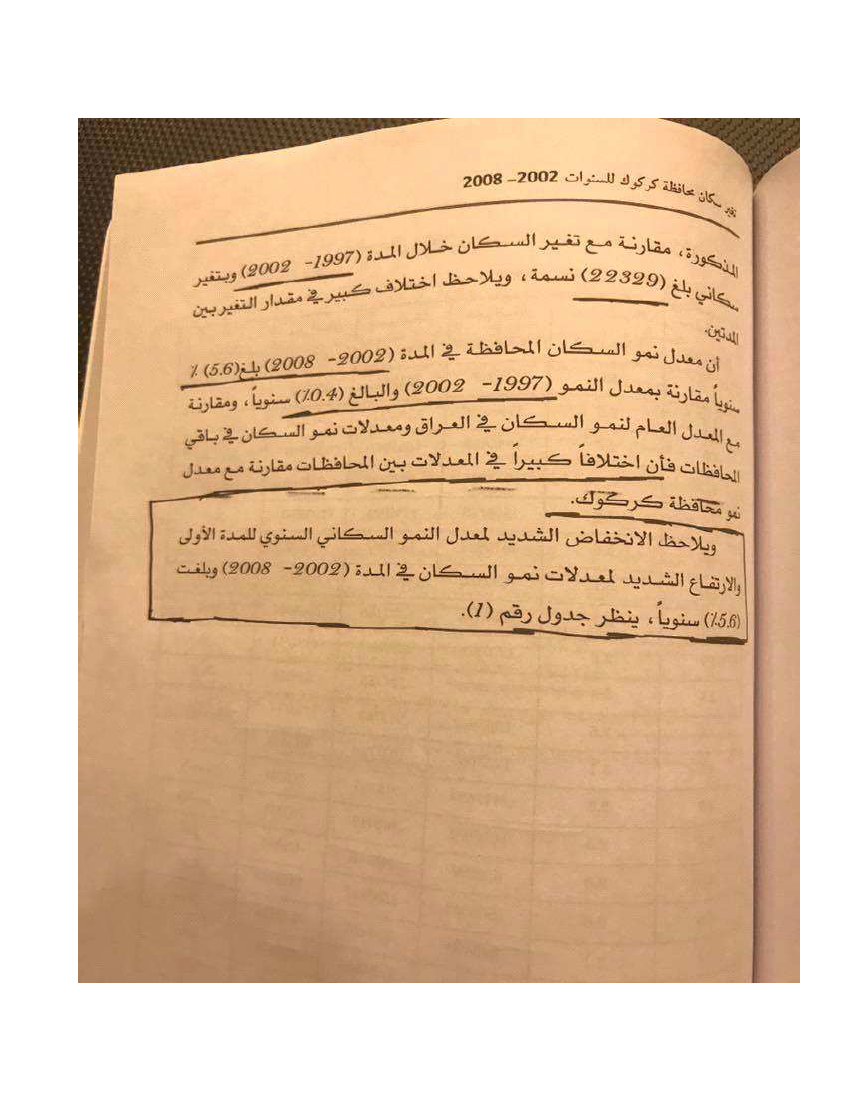 تغير سكان محافظة كركوك للسنوات 2002– 2008
المذكورة، مقارنة مع تغير السكان خلال المدة (1997- 2002) وبتغير
سكاني بلغ (22329) نسمة، ويلاحظ اختلاف كبير في مقدار التغير بين
المدتين.
أن معدل نمو السكان المحافظة في المدة (2002- 2008) بلغ(5.6) ٪
سنوياً مقارنة بمعدل النمو (1997- 2002) والبالغ (0.4٪) سنوياً، ومقارنة
مع المعدل العام لنمو السكان في العراق ومعدلات نمو السكان في باقي
المحافظات فأن اختلافاً كبيراً في المعدلات بين المحافظات مقارنة مع معدل
نمو محافظة كركوك.
ويلاحظ الانخفاض الشديد لمعدل النمو السكاني السنوي للمدة الأولى
والارتفاع الشديد لمعدلات نمو السكان في المدة (2002- 2008) وبلغت
(5.6٪) سنوياً، ينظر جدول رقم (1).